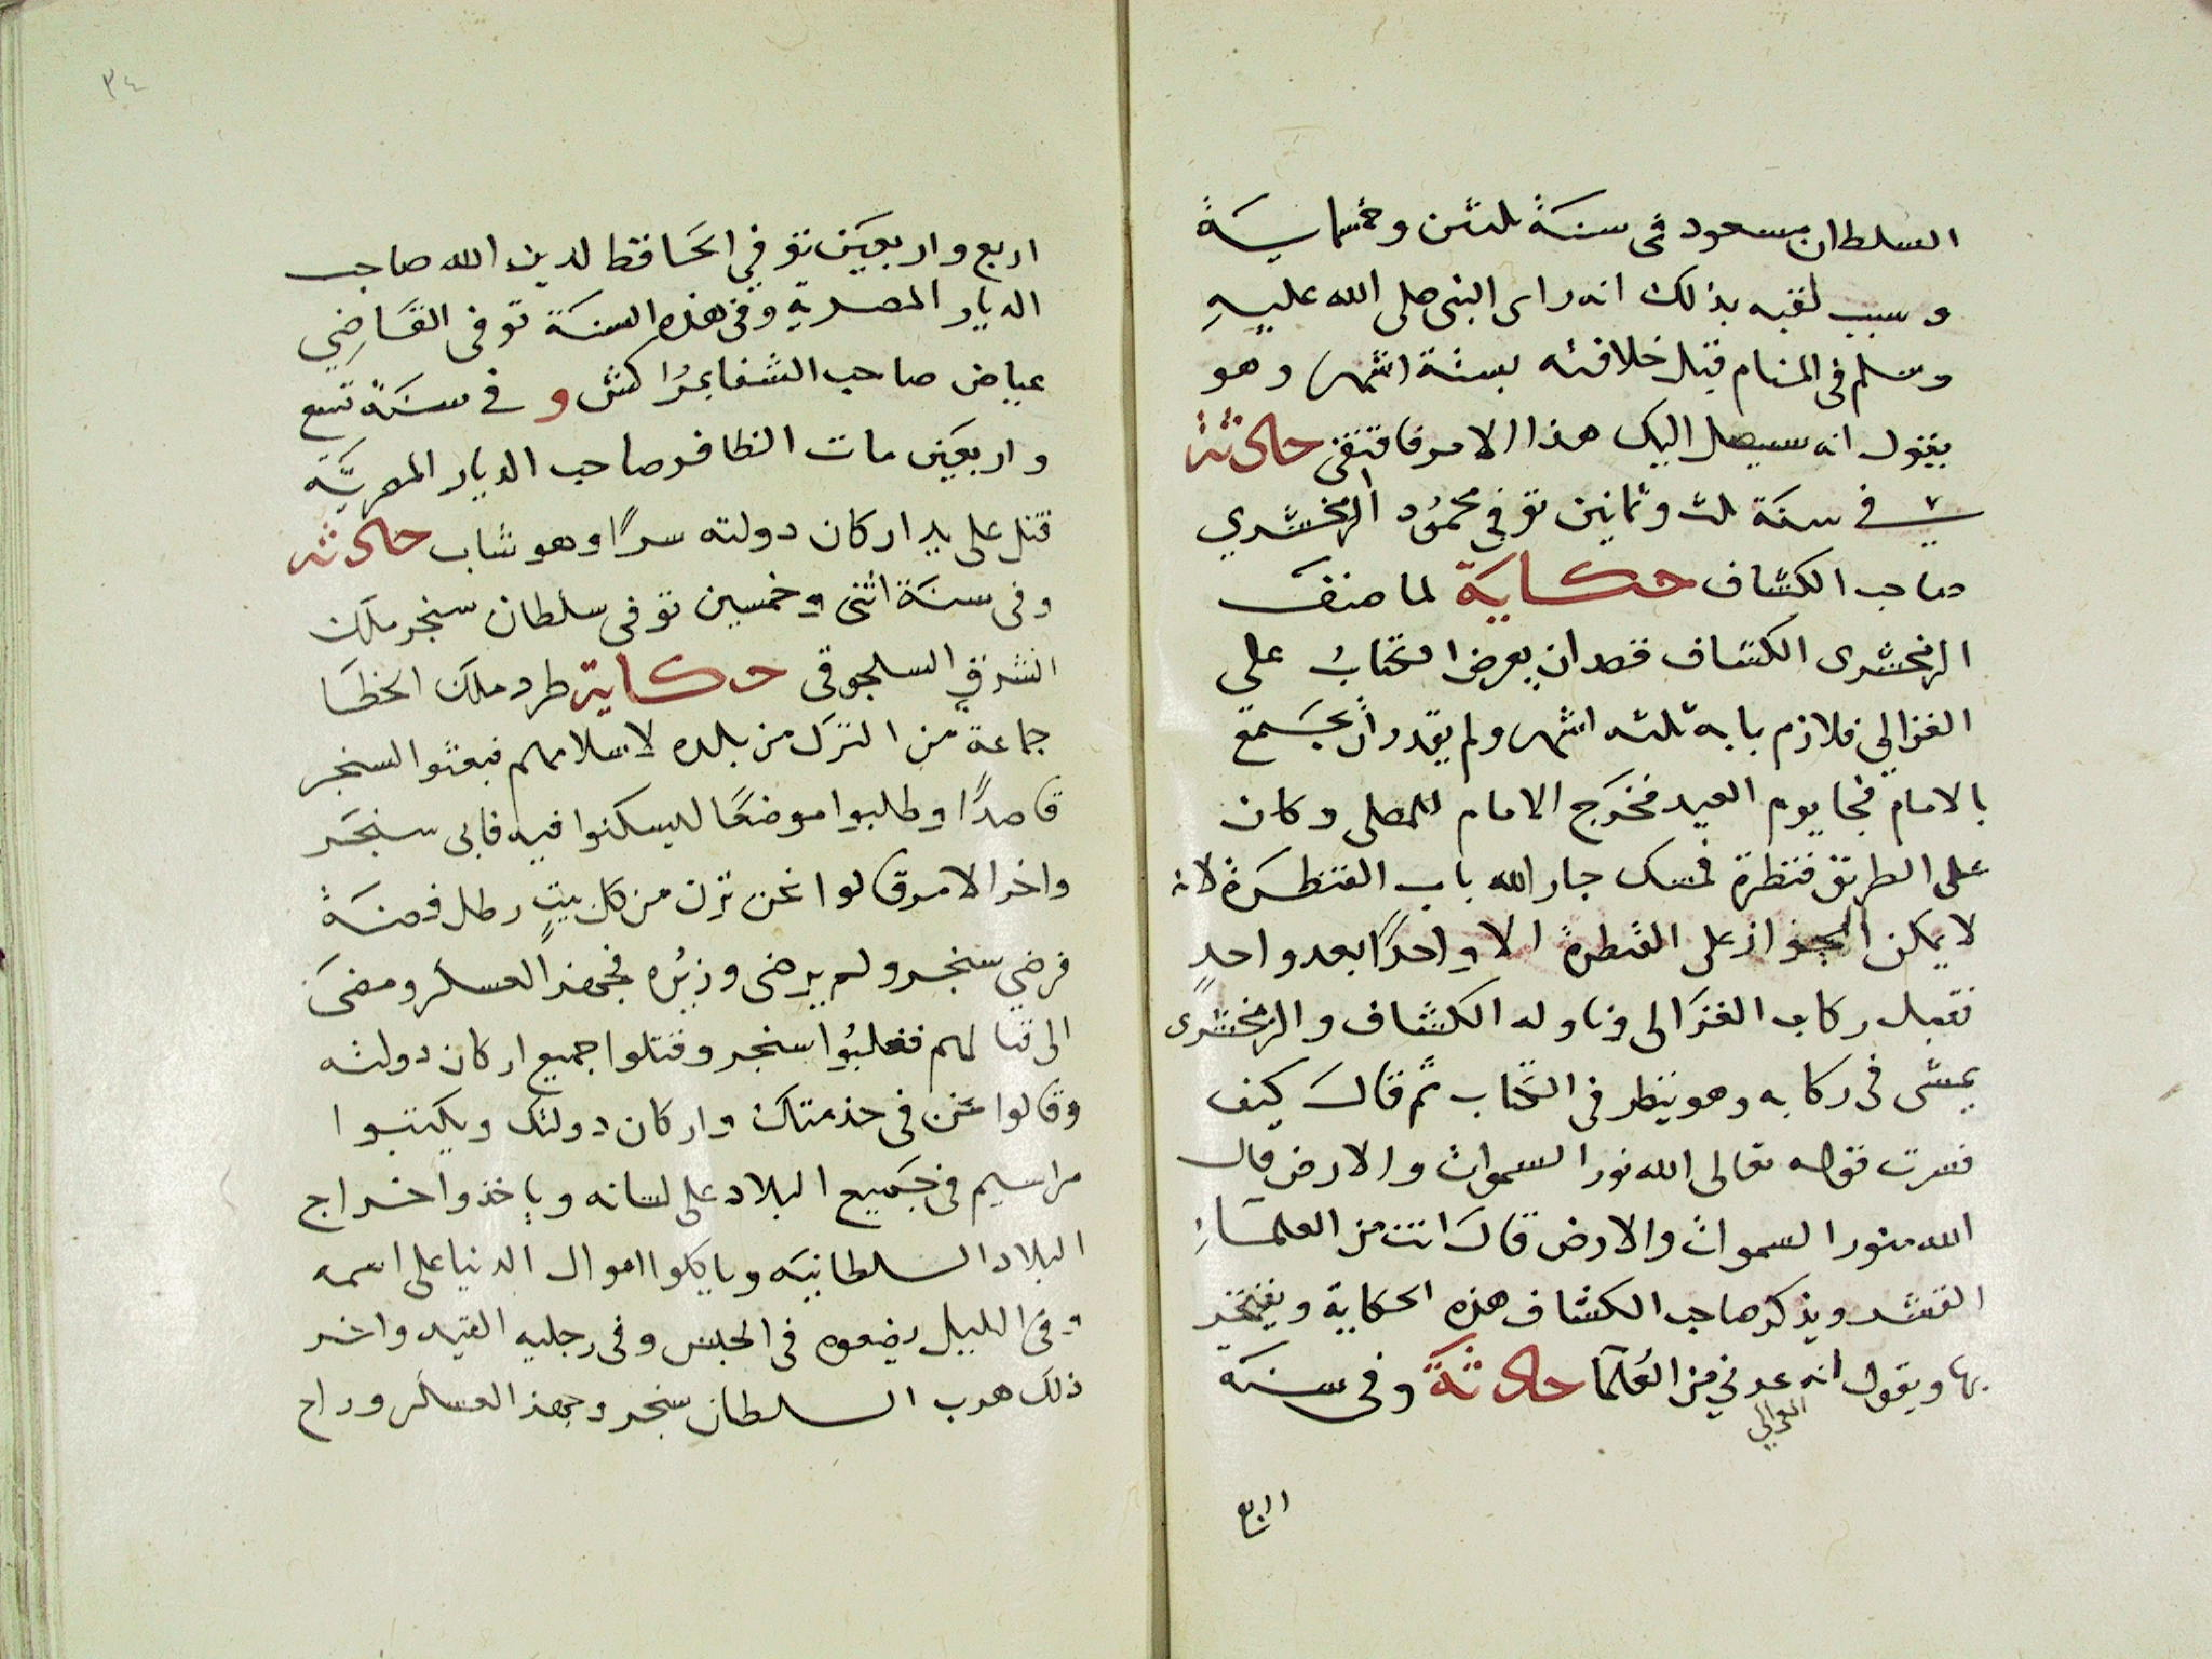 السلطان مسعود فى سنة ثلثين وخمسماية
وسبب لقبه بذلك انه راى النبى صلى الله عليه
وسلم فى المنام قبل خلافته بستة اشهر وهو
يقول انه سيصل اليك هذا الامر فاقتفى حادثة
فى سنة ثلث وثمانين توفى محمود الزمخشري
صاحب الكشاف حكاية لما صنف
الزمخشرى الكشاف قصد ان يعرض الكتاب على
الغزالي فلازم بابه ثلثه اشهر ولم يقدر ان يجتمع
بالامام فجا يوم العيد فخرج الامام للمصلى وكان
على الطريق قنطرة فمسك جار الله باب القنطرة لانه
لا يمكن الجواز على القنطرة الا واحدًا بعد واحدٍ
فقبل ركاب الغزالى وناوله الكشاف والزمخشرى
يمشى فى ركابه وهو ينظر فى الكتاب ثم قال كيف
فسرت قوله تعالى الله نور السموات والارض قال
الله منور السموات والارض قال انت من العلماء
القشر ويذكر صاحب الكشاف هذه الحكاية ويفتخر
بها ويقول انه عدني من العُلما حادثة وفى سنة
الغزالي
اربع
٣٤
اربع واربعين توفي الحافظ لدين الله صاحب
الديار المصرية وفى هذه السنة توفى القاضِي
عياض صاحب الشفا بمراكش و فى سنة تسع
واربعين مات الظافر صاحب الديار المصريّه
قتل على يد اركان دولته سرًا وهو شاب حادثه
وفى سنة اثنى وخمسين توفى سلطان سنجر ملك
الشرق السلجوقى حكاية طرد ملك الخطا
جماعة من الترك من بلده لاسلامهم فبعثوا السنجر
قاصدًا وطلبوا موضعًا ليسكنوا فيه فابى سنجر
واخر الامر قالوا نحن نزن من كل بيتٍ رطل فضة
فرضي سنجر ولم يرضى وزيره فجهز العسكر ومضى
الى قتالهم فغلبُوا سنجر وقتلوا جميع اركان دولته
وقالوا نحن فى خدمتك واركان دولتك ويكتبوا
مراسيم فى جميع البلاد على لسانه وياخذوا خراج
البلاد السلطانيه وياكلوا اموال الدنيا على اسمه
وفى الليل يضعوه فى الحبس وفى رجليه القيد واخر
ذلك هرب السلطان سنجر وجهز العسكر وراح